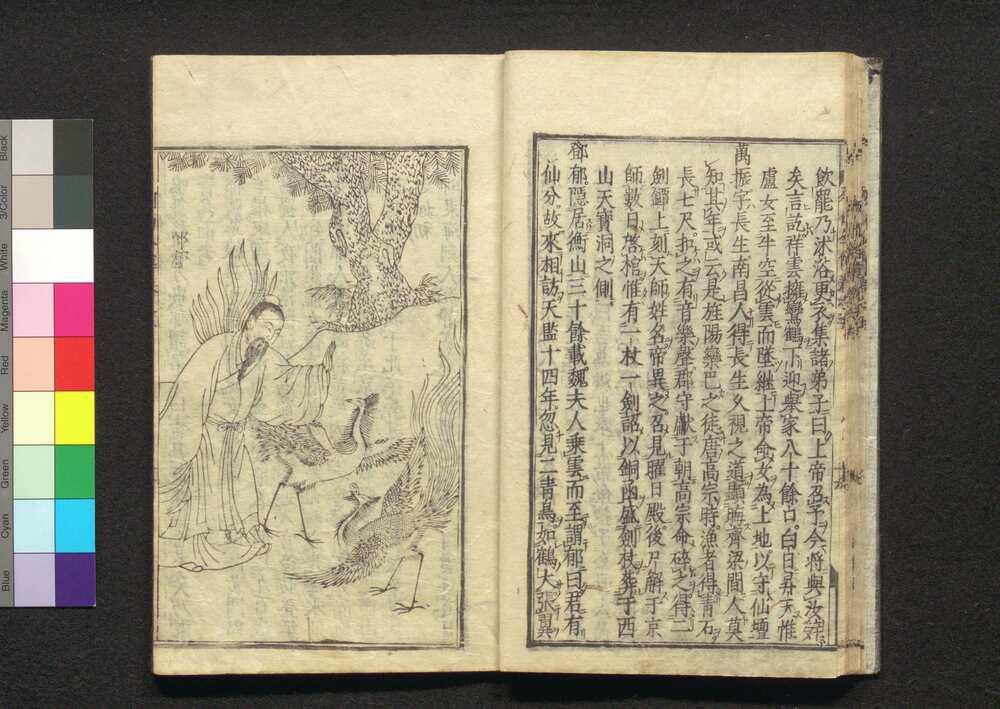 飲罷乃沐浴更衣集諸弟子曰上帝召予今將與汝等
矣言訖祥雲擁鸞鶴下迎擧家八十餘口白日昇天惟
盧女至半空從雲而墜繼上帝命女為土地以守仙壇
萬振字長生南昌人得長生久視之道顯晦齊梁間人莫
知其年或云是旌陽欒巴之徒唐高宗時漁者得青石
長七尺扣之有音樂聲郡守獻于朝高宗命碎之得二
劍鐔上刻天師姓名帝異之召見曜日殿後尸解于京
師數日啓棺惟有一杖一劍詔以銅函盛劍杖葬于西
山天寶洞之側
鄧郁隱居衡山三十餘載魏夫人乘雲而至謂郁曰君有
仙分故來相訪天監十四年忽見二青鳥如鶴大張翼
鄧郁
Black
3/Color
White
Magenta
Red
Yellow
Green
Cyan
Blue